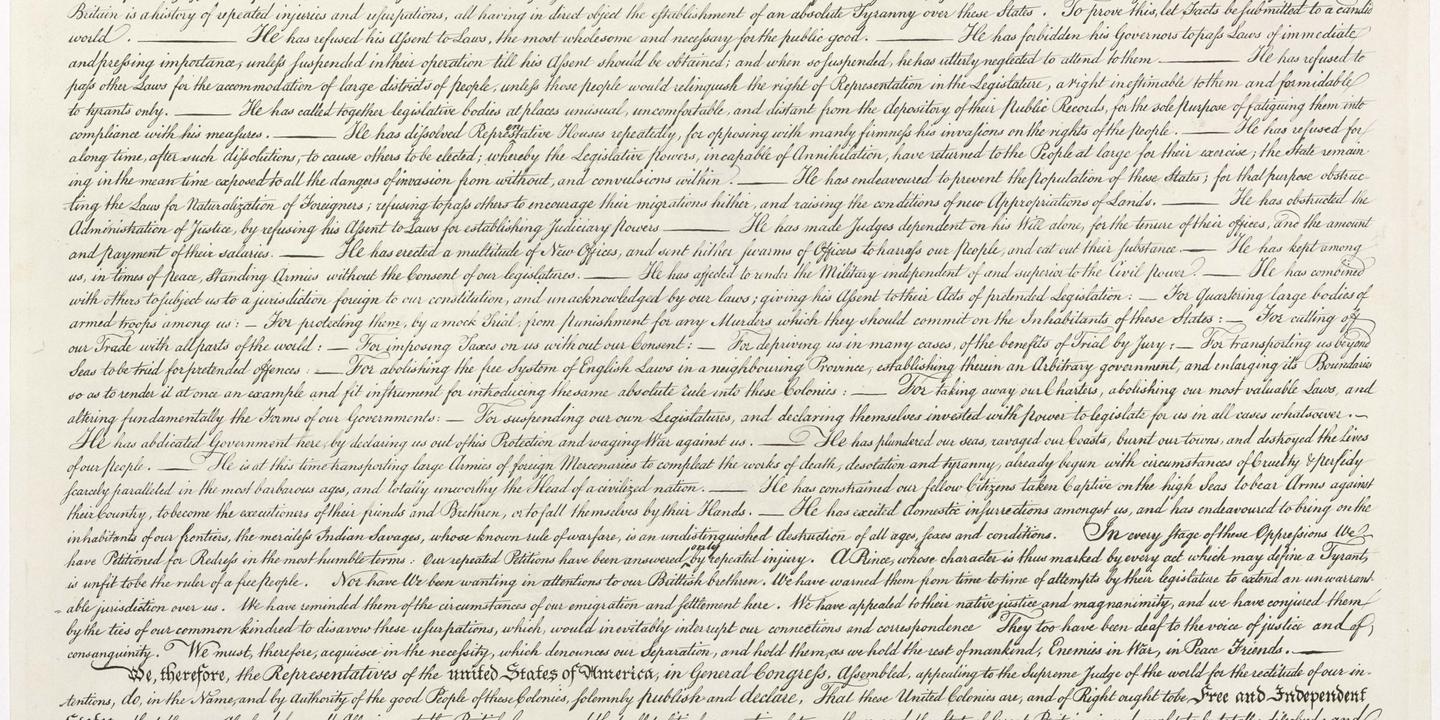 Britain is a history of repeated injuries and usurpations, all having in direct object the establishment of an absolute Tyranny over these States. To prove this, let Facts be submitted to a candid
world. ——— He has refused his Assent to Laws, the most wholesome and necessary for the public good. ——— He has forbidden his Governors to pass Laws of immediate
and pressing importance, unless suspended in their operation till his Assent should be obtained; and when so suspended, he has utterly neglected to attend to them. ——— He has refused to
pass other Laws for the accommodation of large districts of people, unless those people would relinquish the right of Representation in the Legislature, a right inestimable to them and formidable
to tyrants only. ——— He has called together legislative bodies at places unusual, uncomfortable, and distant from the depository of their public Records, for the sole purpose of fatiguing them into
compliance with his measures. ——— He has dissolved Representative Houses repeatedly, for opposing with manly firmness his invasions on the rights of the people. ——— He has refused for
a long time, after such dissolutions, to cause others to be elected; whereby the Legislative powers, incapable of Annihilation, have returned to the People at large for their exercise; the State remain-
ing in the mean time exposed to all the dangers of invasion from without, and convulsions within. ——— He has endeavoured to prevent the population of these States; for that purpose obstruc-
ting the Laws for Naturalization of Foreigners; refusing to pass others to encourage their migrations hither, and raising the conditions of new Appropriations of Lands. ——— He has obstructed the
Administration of Justice, by refusing his Assent to Laws for establishing Judiciary powers ——— He has made Judges dependent on his Will alone, for the tenure of their offices, and the amount
and payment of their salaries. ——— He has erected a multitude of New Offices, and sent hither swarms of Officers to harrass our people, and eat out their substance. — He has kept among
us, in times of peace, Standing Armies without the Consent of our legislatures. ——— He has affected to render the Military independent of and superior to the Civil power. — He has combined
with others to subject us to a jurisdiction foreign to our constitution, and unacknowledged by our laws; giving his Assent to their Acts of pretended Legislation: — For Quartering large bodies of
armed troops among us: — For protecting them, by a mock Trial, from punishment for any Murders which they should commit on the Inhabitants of these States: — For cutting off
our Trade with all parts of the world: — For imposing Taxes on us without our Consent: — For depriving us in many cases, of the benefits of Trial by Jury: — For transporting us beyond
Seas to be tried for pretended offences: — For abolishing the free System of English Laws in a neighbouring Province, establishing therein an Arbitrary government, and enlarging its Boundaries
so as to render it at once an example and fit instrument for introducing the same absolute rule into these Colonies: — For taking away our Charters, abolishing our most valuable Laws, and
altering fundamentally the Forms of our Governments: — For suspending our own Legislatures, and declaring themselves invested with power to legislate for us in all cases whatsoever. —
He has abdicated Government here, by declaring us out of his Protection and waging War against us. — He has plundered our seas, ravaged our Coasts, burnt our towns, and destroyed the Lives
of our people. — He is at this time transporting large Armies of foreign Mercenaries to compleat the works of death, desolation and tyranny, already begun with circumstances of Cruelty & perfidy
scarcely paralleled in the most barbarous ages, and totally unworthy the Head of a civilized nation. — He has constrained our fellow Citizens taken Captive on the high Seas to bear Arms against
their Country, to become the executioners of their friends and Brethren, or to fall themselves by their Hands. — He has excited domestic insurrections amongst us, and has endeavoured to bring on the
inhabitants of our frontiers, the merciless Indian Savages, whose known rule of warfare, is an undistinguished destruction of all ages, sexes and conditions. In every stage of these Oppressions We
have Petitioned for Redress in the most humble terms: Our repeated Petitions have been answered only by repeated injury. A Prince, whose character is thus marked by every act which may define a Tyrant,
is unfit to be the ruler of a free people. Nor have We been wanting in attentions to our Brittish brethren. We have warned them from time to time of attempts by their legislature to extend an unwarrant-
able jurisdiction over us. We have reminded them of the circumstances of our emigration and settlement here. We have appealed to their native justice and magnanimity, and we have conjured them
by the ties of our common kindred to disavow these usurpations, which, would inevitably interrupt our connections and correspondence They too have been deaf to the voice of justice and of
consanguinity. We must, therefore, acquiesce in the necessity, which denounces our Separation, and hold them, as we hold the rest of mankind, Enemies in War, in Peace Friends. —
We, therefore, the Representatives of the united States of America, in General Congress, Assembled, appealing to the Supreme Judge of the world for the rectitude of our in-
tentions, do, in the Name, and by Authority of the good People of these Colonies, solemnly publish and declare, That these United Colonies are, and of Right ought to be Free and Independent